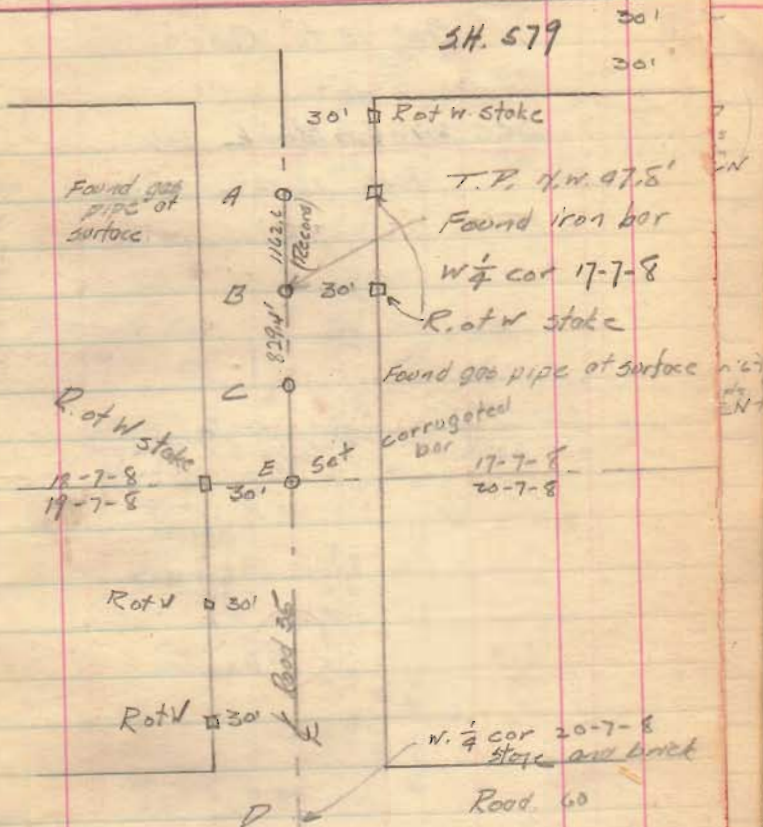 30'
S.H. 579
30'
30' R of W. stake
Found gas
pipe at
surface
A
1162.6
(Record)
T.P. N.W. 47.5'
Found iron bar
W 1/4 cor 17-7-8
B
30'
R. of W stake
829.4'
C
Found gas pipe at surface
R. of W stake
corrugated
bar
E Set
18-7-8
19-7-8
30'
17-7-8
20-7-8
R of W
30'
Road 35
R of W
30'
W. 1/4 cor 20-7-8
stone and brick
D
Road 60